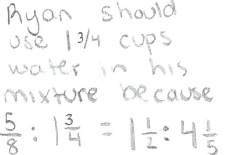 Ryan should
use 1 3/4 cups
water in his
mixture because
5/8 : 1 3/4 = 1 1/2 : 4 1/5